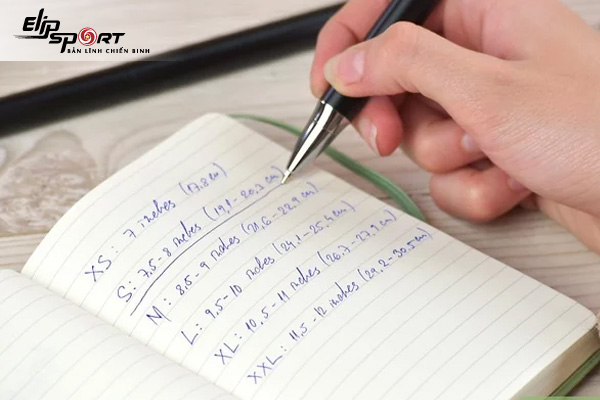 Elip SPORT
BẢN LĨNH CHIẾN BINH
XS: 7 inches (17,8 cm)
S: 7,5-8 inches (19,1-20,3 cm)
M: 8,5-9 inches (21,6-22,9 cm)
L: 9,5-10 inches (24,1-25,4 cm)
XL: 10,5-11 inches (26,7-27,9 cm)
XXL: 11,5-12 inches (29,2-30,5 cm)